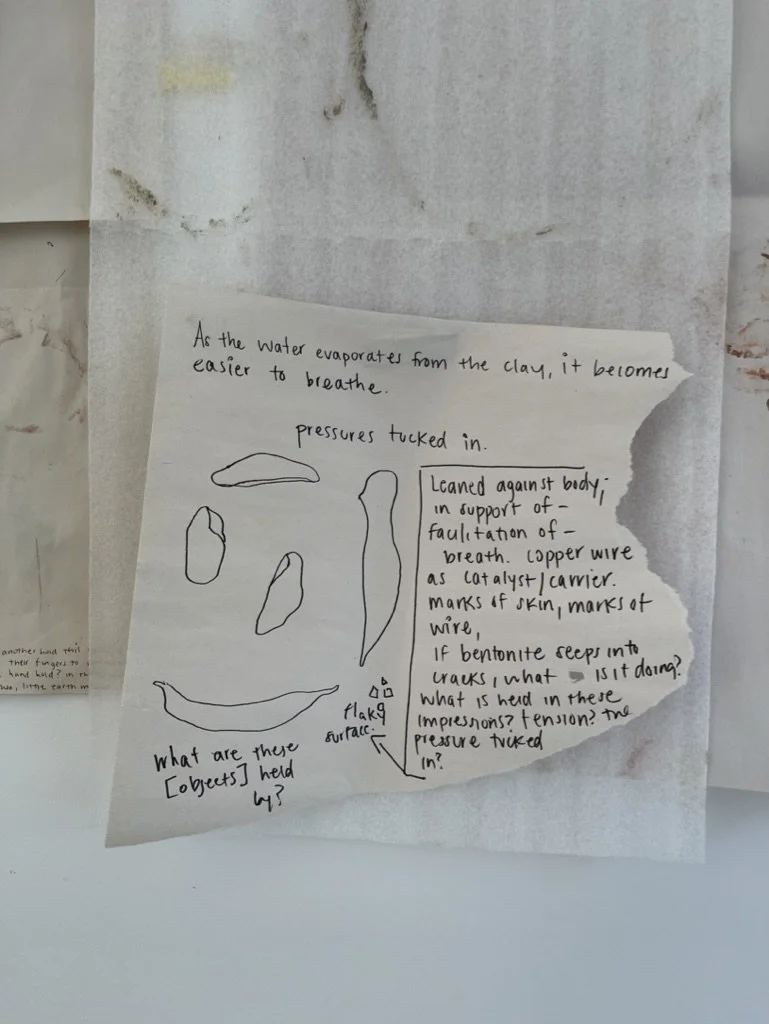 As the water evaporates from the clay, it becomes
easier to breathe.
pressures tucked in.
Leaned against body;
in support of -
facilitation of -
breath. copper wire
as catalyst/carrier.
marks of skin, marks of
wire,
if bentonite seeps into
cracks, what is it doing?
What is held in these
impressions? tension? the
pressure tucked
in?
flaky
surface.
What are these
[objects] held
by?
another hand this
their fingers to
hand hold? in
little earth